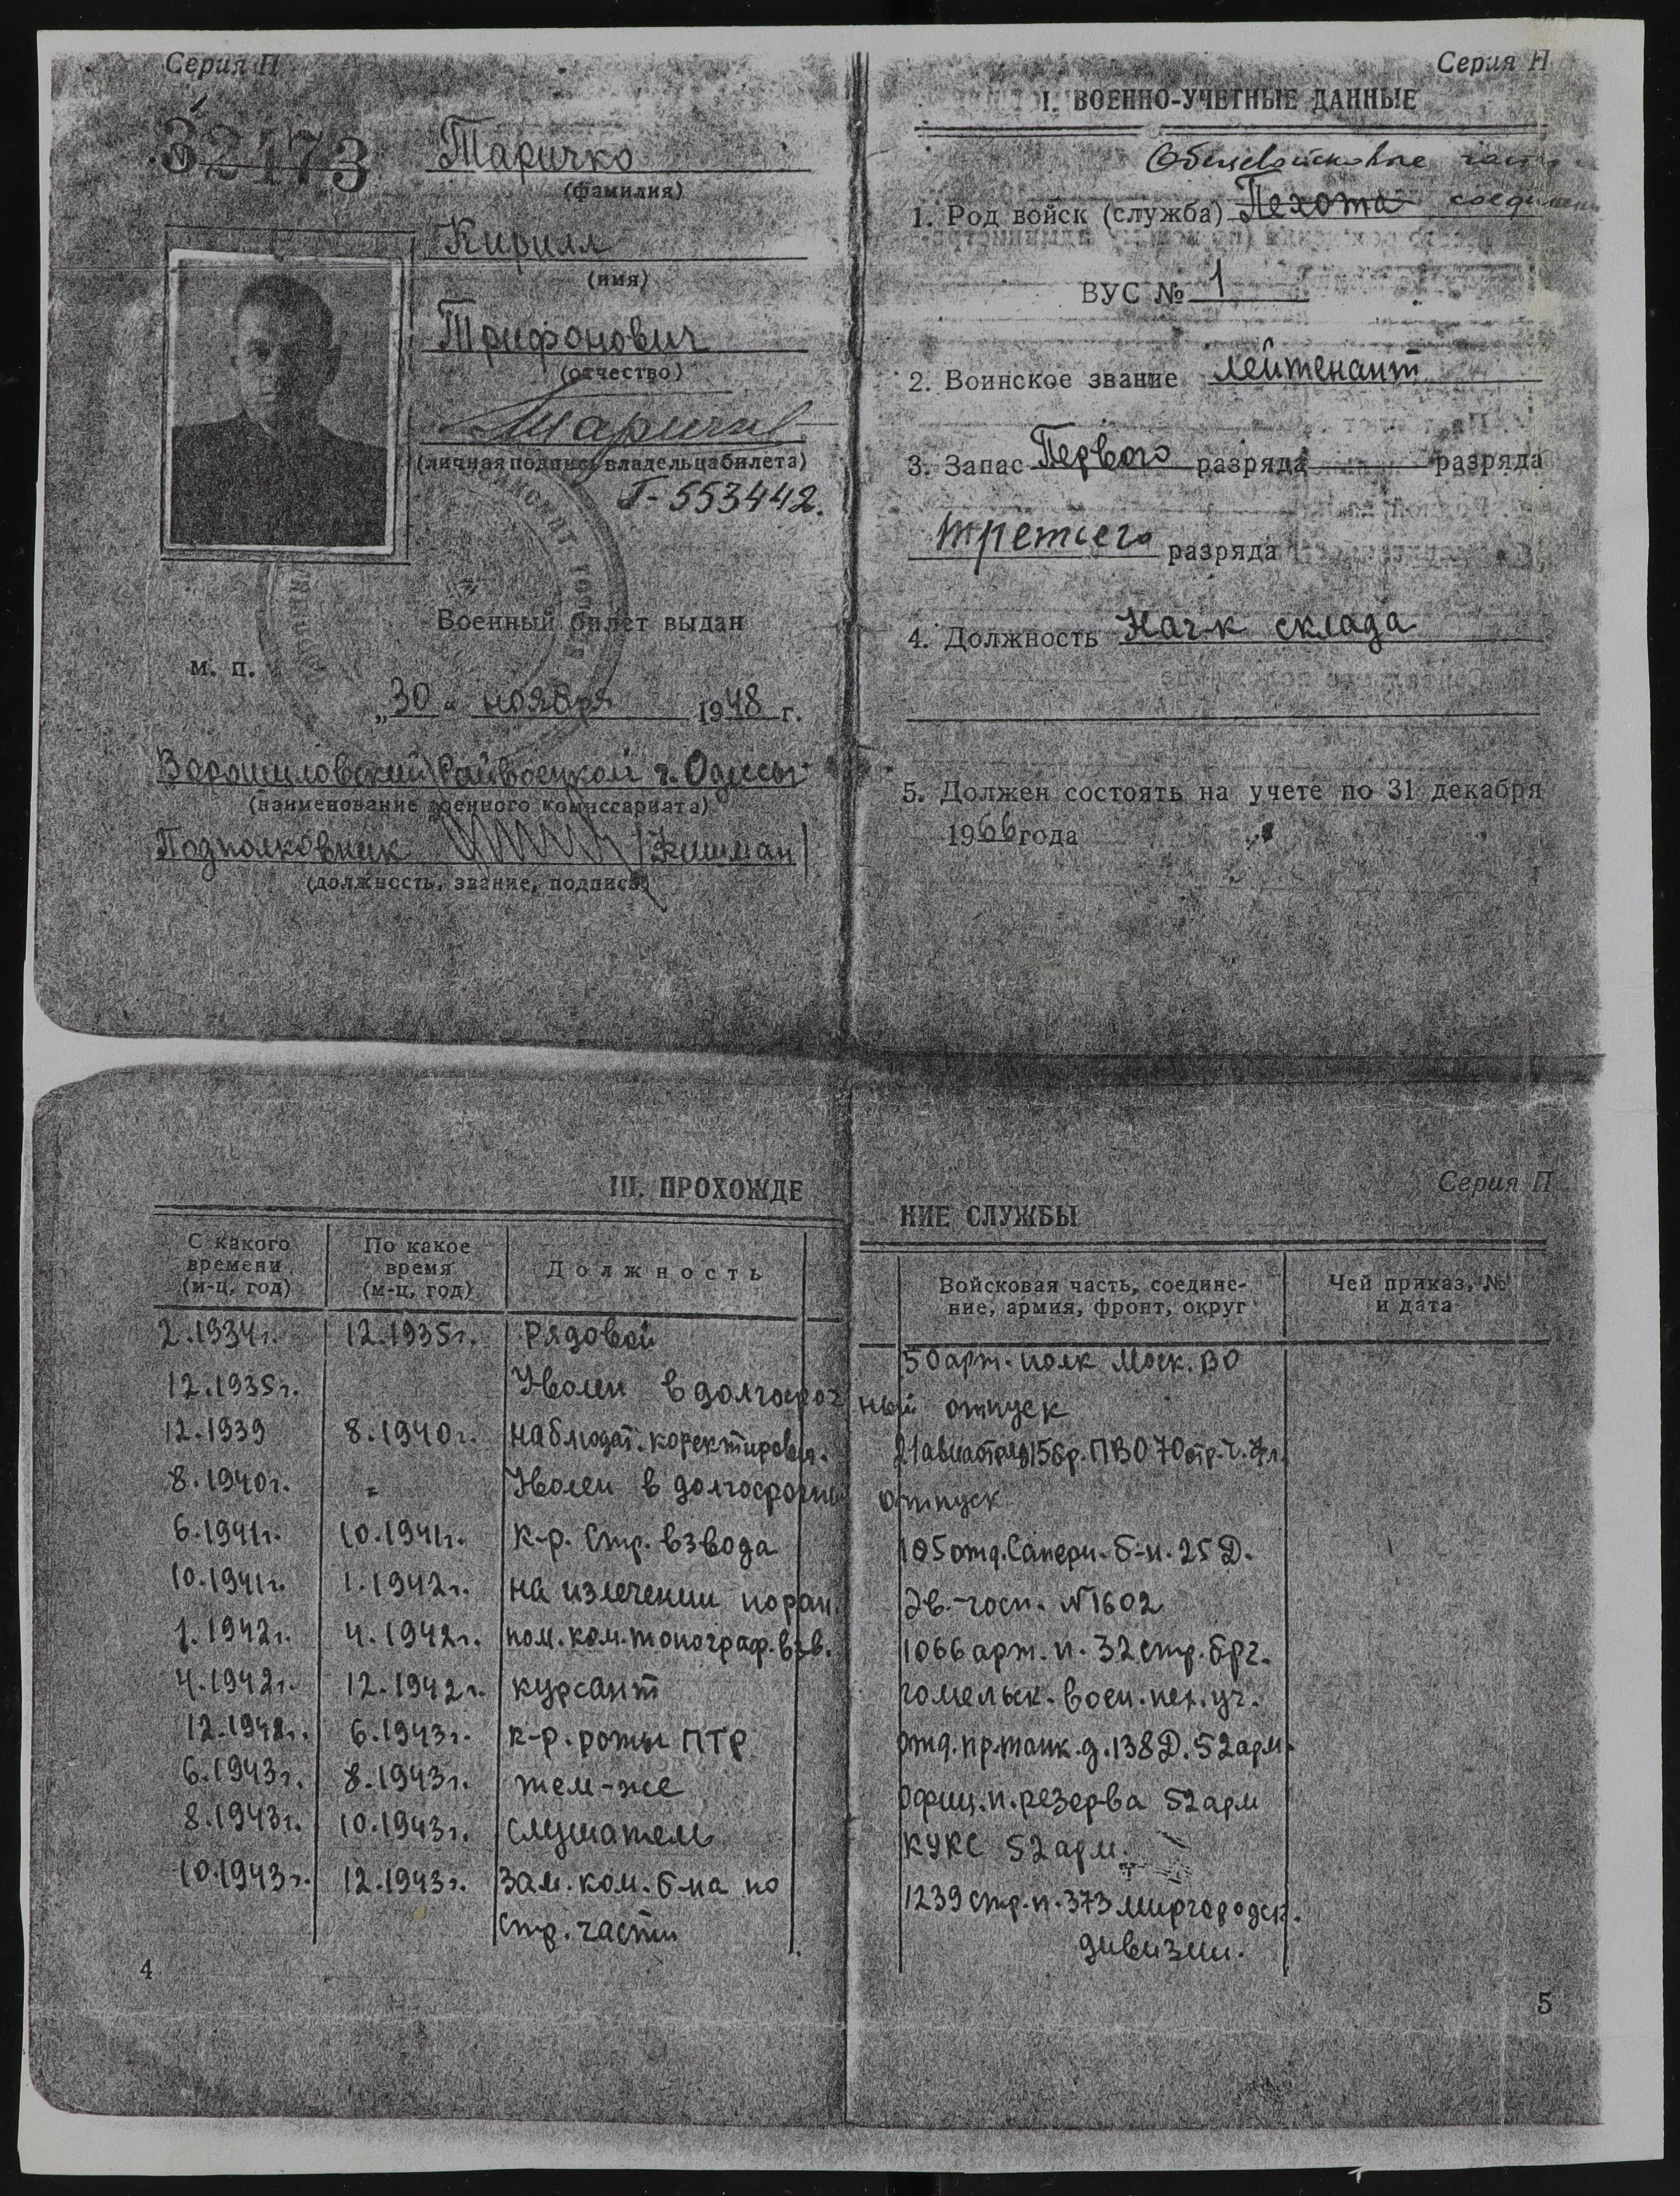 Серия П
32473
Таричко
(фамилия)
Кирилл
(имя)
Трифонович
(отчество)
(личная подпись владельца билета)
Т-553442.
Военный билет выдан
м. п.
„30" ноября 1948 г.
Ворошиловский Райвоенком г. Одессы
(наименование военного комиссариата)
Подполковник
(должность, звание, подпись)
Серия П
I. ВОЕННО-УЧЕТНЫЕ ДАННЫЕ
Общевойсковые
1. Род войск (служба) Пехота
ВУС № 1
2. Воинское звание лейтенант
3. Запас Первого разряда разряда
третьего разряда
4. Должность Нач-к склада
5. Должен состоять на учете по 31 декабря
1966 года
III. ПРОХОЖДЕ
С какого времени (м-ц, год) По какое время (м-ц, год) Должность
2.1934г. 12.1935г. Рядовой
12.1935г. Уволен в долгосроч
12.1939 8.1940г. наблюдат. коректировщ.
8.1940г. = Уволен в долгосрочн
6.1941г. 10.1941г. к-р. стр. взвода
10.1941г. 1.1942г. на излечении по ран.
1.1942г. 4.1942г. пом. ком. топограф. взв.
4.1942г. 12.1942г. курсант
12.1942г. 6.1943г. к-р. роты ПТР
6.1943г. 8.1943г. тем-же
8.1943г. 10.1943г. слушатель
10.1943г. 12.1943г. Зам. ком. б-на по
стр. части
4
Серия П
НИЕ СЛУЖБЫ
Войсковая часть, соединение, армия, фронт, округ Чей приказ, № и дата
50 арт. полк Моск. ВО
ный отпуск
21 авиаотряд 15 бр. ПВО 70
отпуск
105 отд. Саперн. б-н. 25 Д.
Эв.-госп. №1602
1066 арт. п. 32 стр. брг.
гомельск. воен. пех. уч.
отд. пр. танк. д. 138 Д. 52 арм.
офиц. п. резерва 52 арм
КУКС 52 арм.
1239 стр. п. 373 миргородск.
дивизии.
5